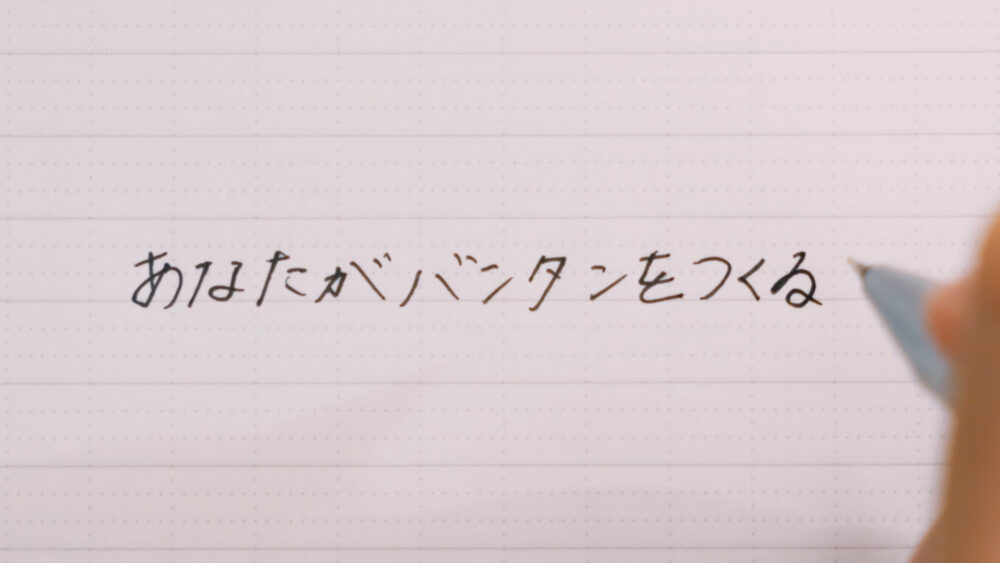 あなたがバンタンをつくる